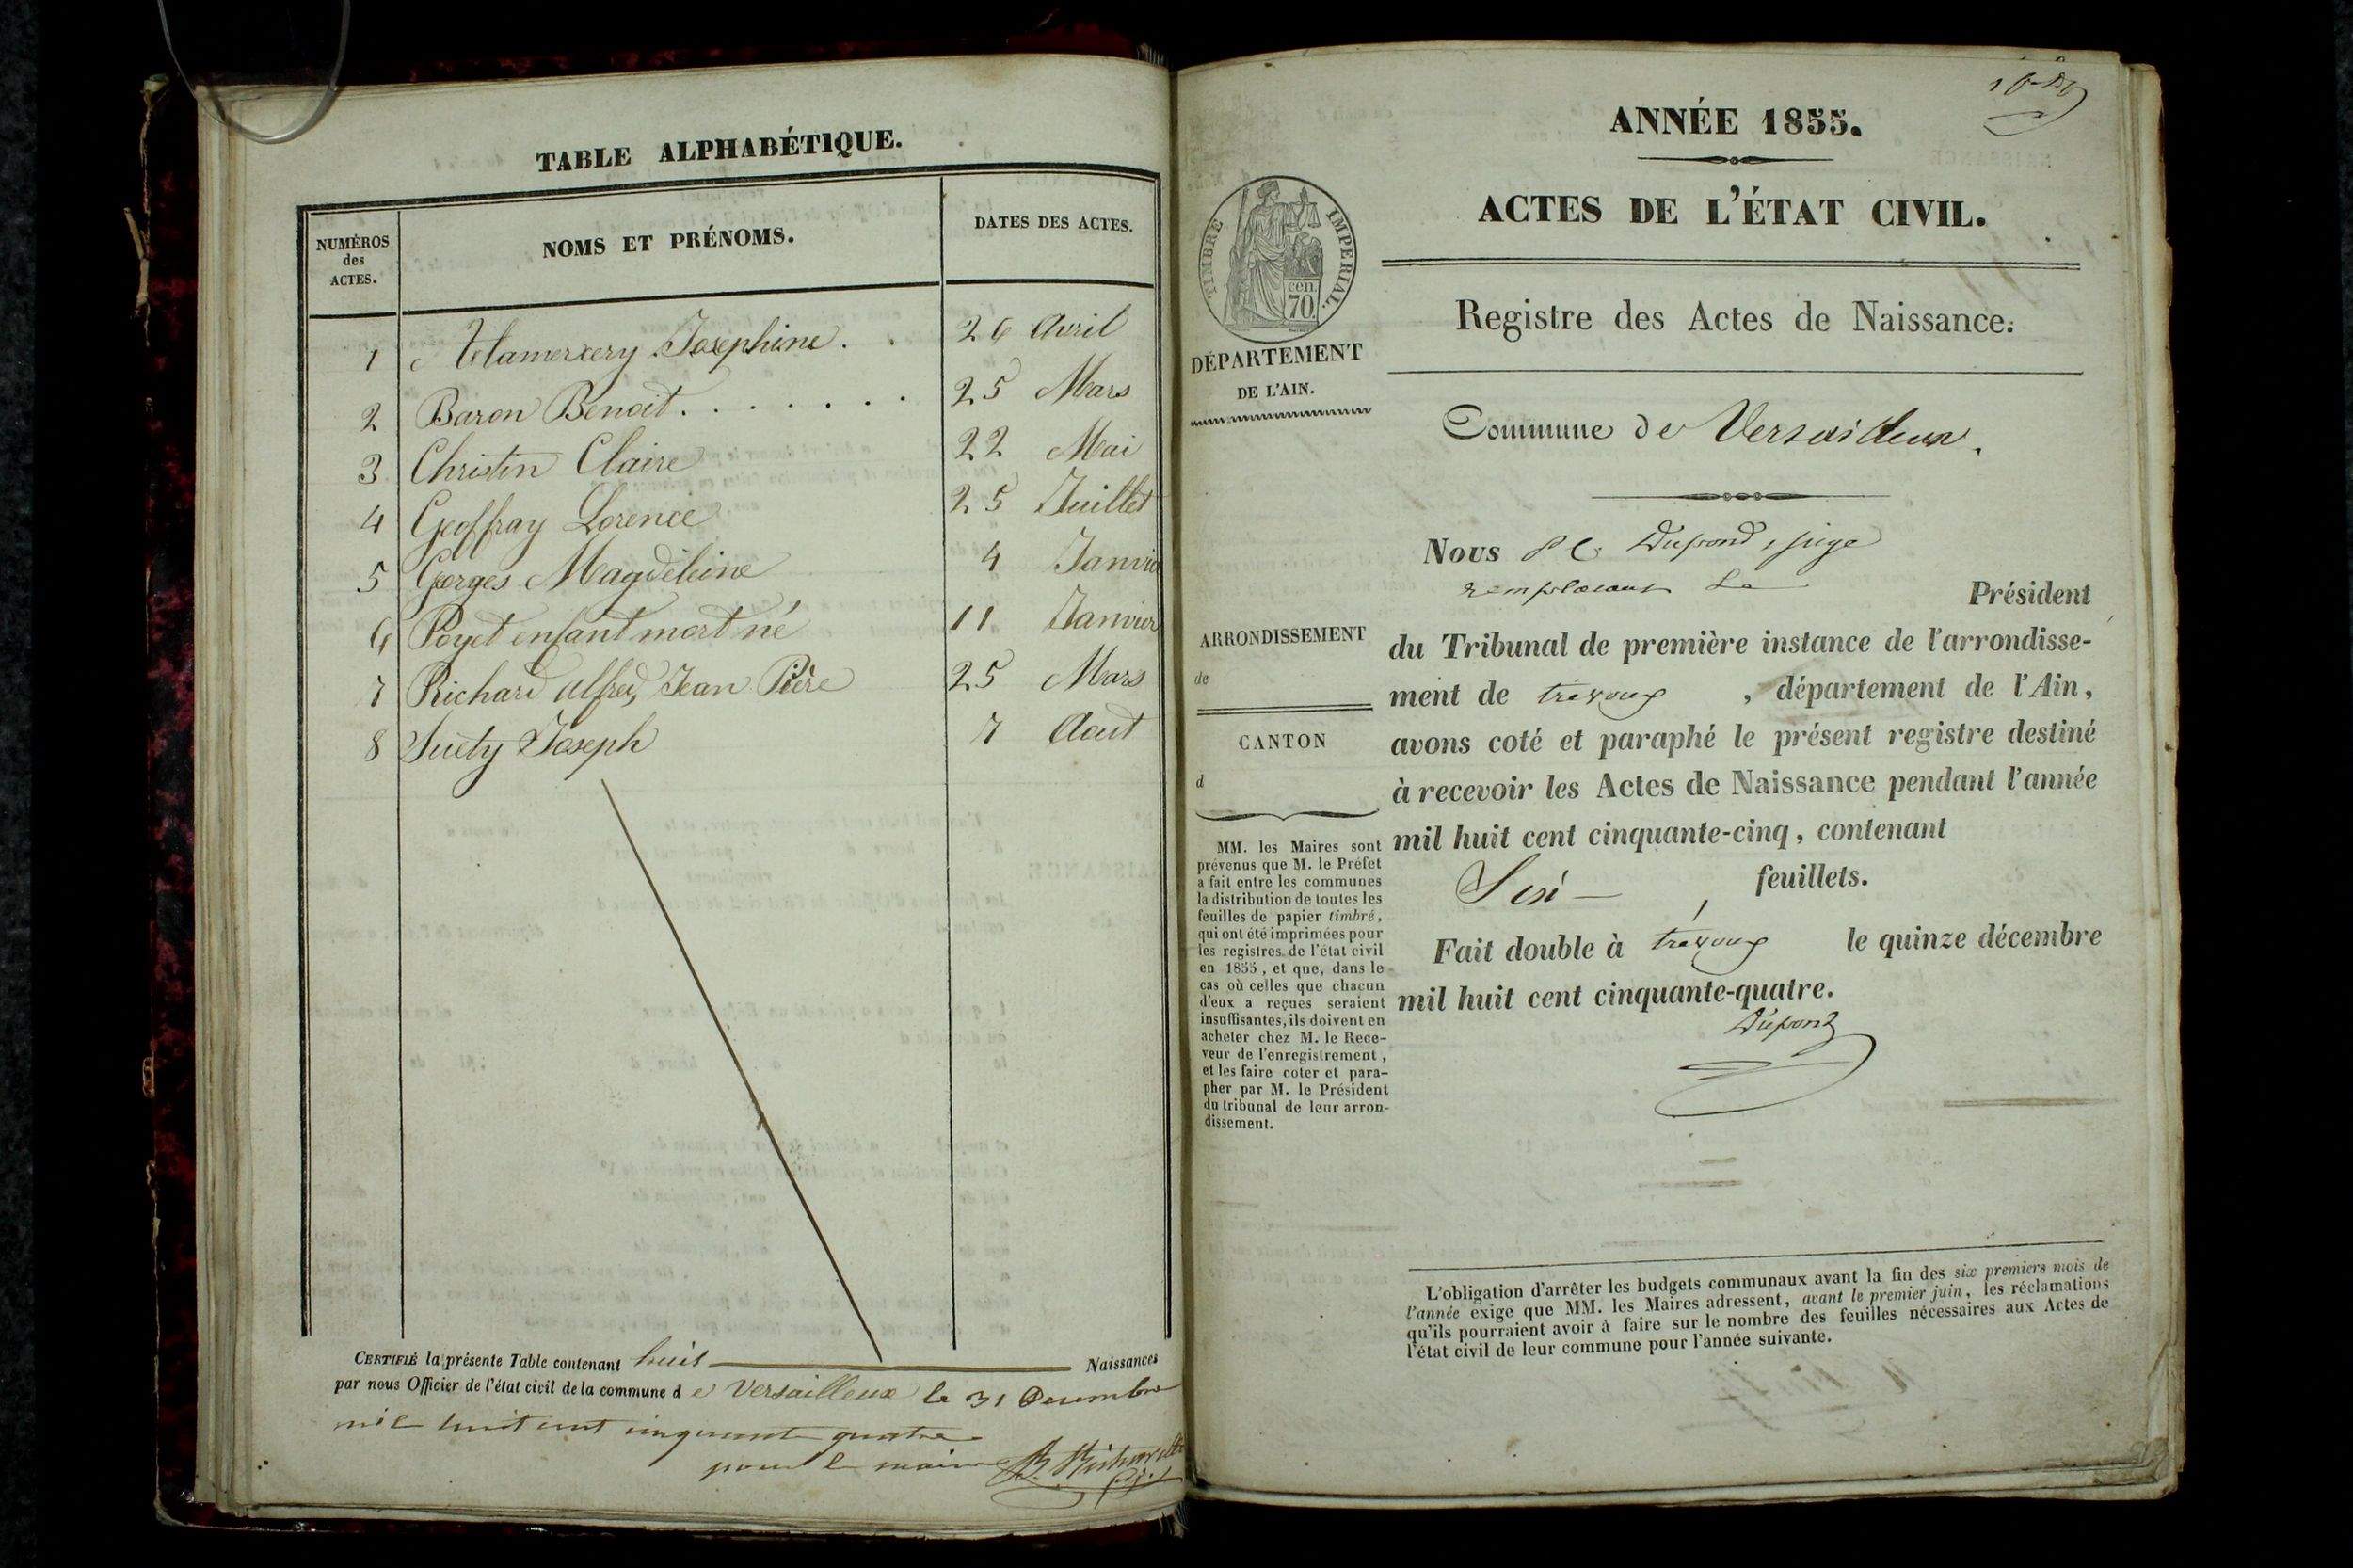 TABLE ALPHABÉTIQUE.
NUMÉROS
des
ACTES.
NOMS ET PRÉNOMS.
DATES DES ACTES.
1 Josephine . . 26 Avril
2 Baron Benoit . . . . . . . 25 Mars
3 Christin Claire 22 Mai
4 Geoffray Lorence 25 Juillet
5 Gorges Magdeleine 4 Janvier
6 Poyet enfant mort né 11 Janvier
7 Richard Alfred Jean Pière 25 Mars
8 Suety Joseph 7 Aout
CERTIFIÉ la présente Table contenant huit Naissances
par nous Officier de l'état civil de la commune de Versailleux le 31 Decembre
mil huit cent cinquante quatre
pour le maire
ANNÉE 1855.
ACTES DE L'ÉTAT CIVIL.
TIMBRE IMPERIAL.
cen.
70.
Registre des Actes de Naissance.
DÉPARTEMENT
DE L'AIN.
Commune de Versailleux.
Nous Dupond, juge
remplacant le Président
du Tribunal de première instance de l'arrondisse-
ment de trévoux, département de l'Ain,
avons coté et paraphé le présent registre destiné
à recevoir les Actes de Naissance pendant l'année
mil huit cent cinquante-cinq, contenant
Six feuillets.
Fait double à trévoux le quinze décembre
mil huit cent cinquante-quatre.
Dupond
ARRONDISSEMENT
de
CANTON
d
MM. les Maires sont
prévenus que M. le Préfet
a fait entre les communes
la distribution de toutes les
feuilles de papier timbré,
qui ont été imprimées pour
les registres de l'état civil
en 1855, et que, dans le
cas où celles que chacun
d'eux a reçues seraient
insuffisantes, ils doivent en
acheter chez M. le Rece-
veur de l'enregistrement,
et les faire coter et para-
pher par M. le Président
du tribunal de leur arron-
dissement.
L'obligation d'arrêter les budgets communaux avant la fin des six premiers mois de
l'année exige que MM. les Maires adressent, avant le premier juin, les réclamations
qu'ils pourraient avoir à faire sur le nombre des feuilles nécessaires aux Actes de
l'état civil de leur commune pour l'année suivante.